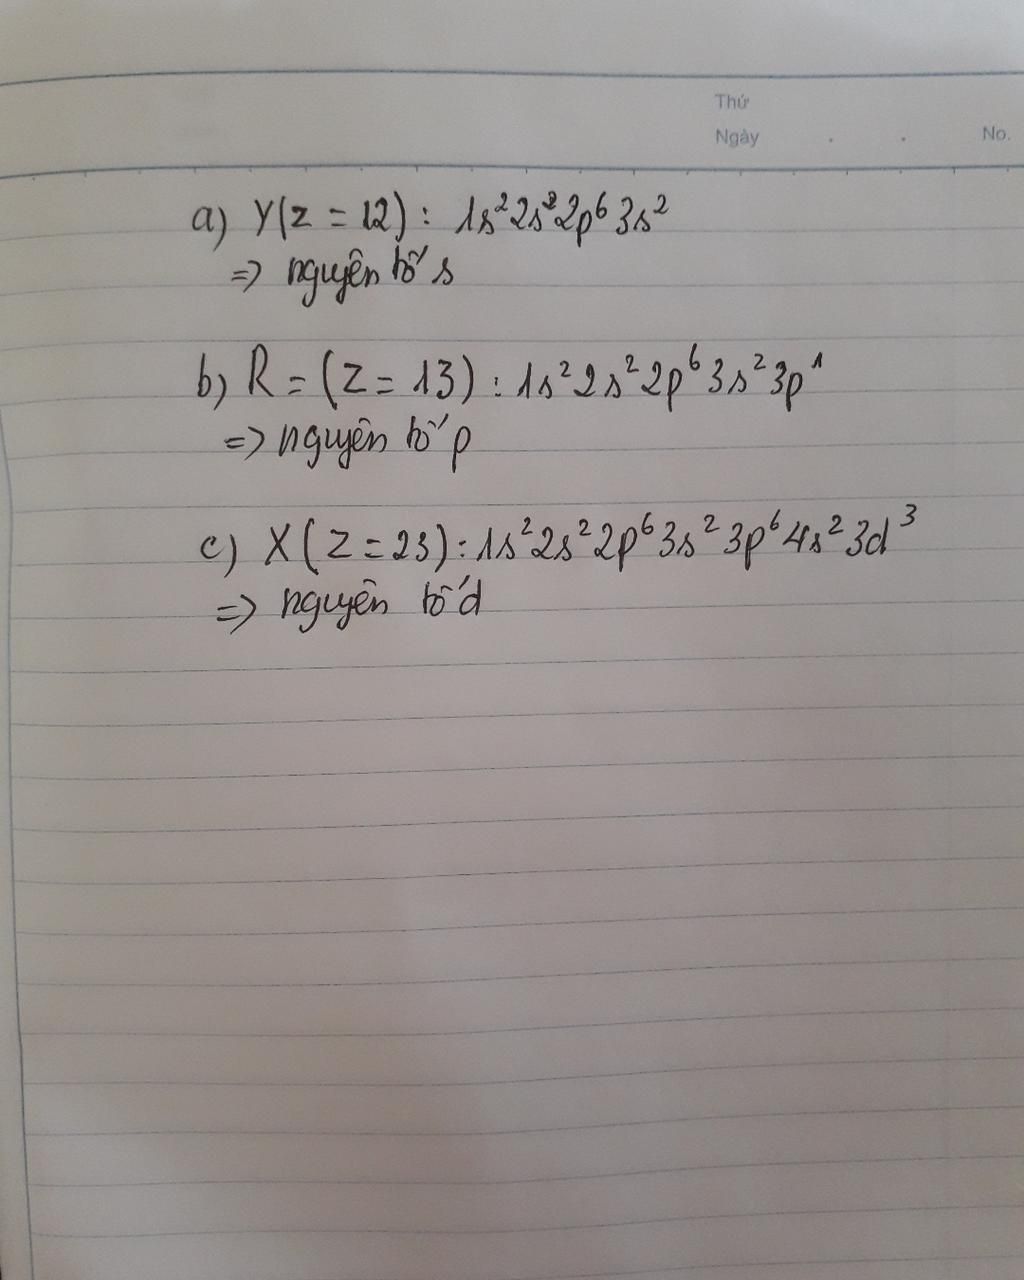 Thứ
Ngày . . No.
a) Y(z = 12) : 1s² 2s² 2p⁶ 3s²
=> nguyên tố s
b) R = (Z = 13) : 1s² 2s² 2p⁶ 3s² 3p¹
=> nguyên tố p
c) X (Z = 23) : 1s² 2s² 2p⁶ 3s² 3p⁶ 4s² 3d³
=> nguyên tố d